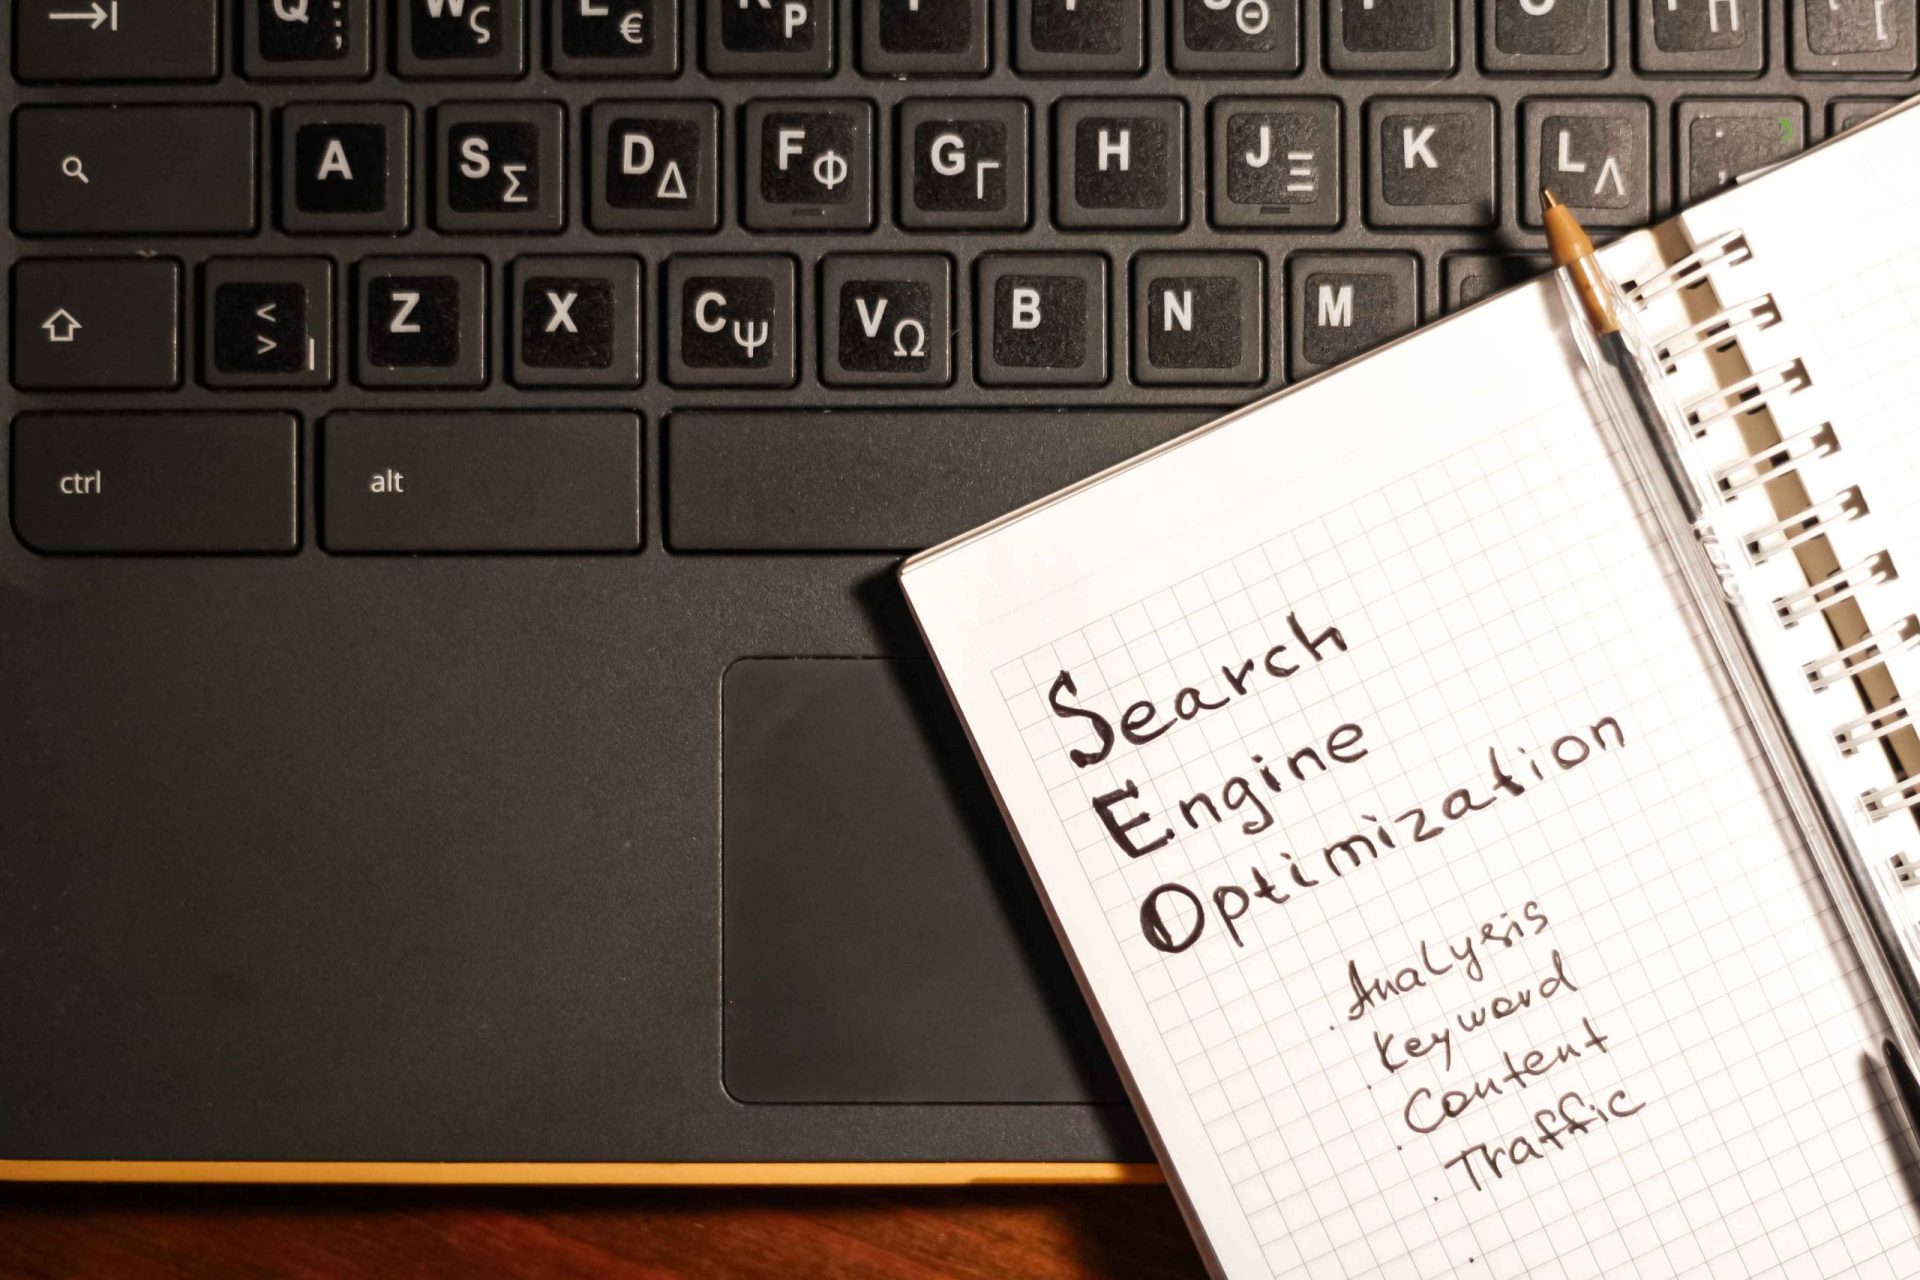 Q ; :
W ς
E €
R Ρ
Θ
Π
A
S Σ
D Δ
F Φ
G Γ
H
J Ξ
K
L Λ
< >
Z
X
C Ψ
V Ω
B
N
M
ctrl
alt
Search
Engine
Optimization
. Analysis
. Keyword
. Content
. Traffic
.